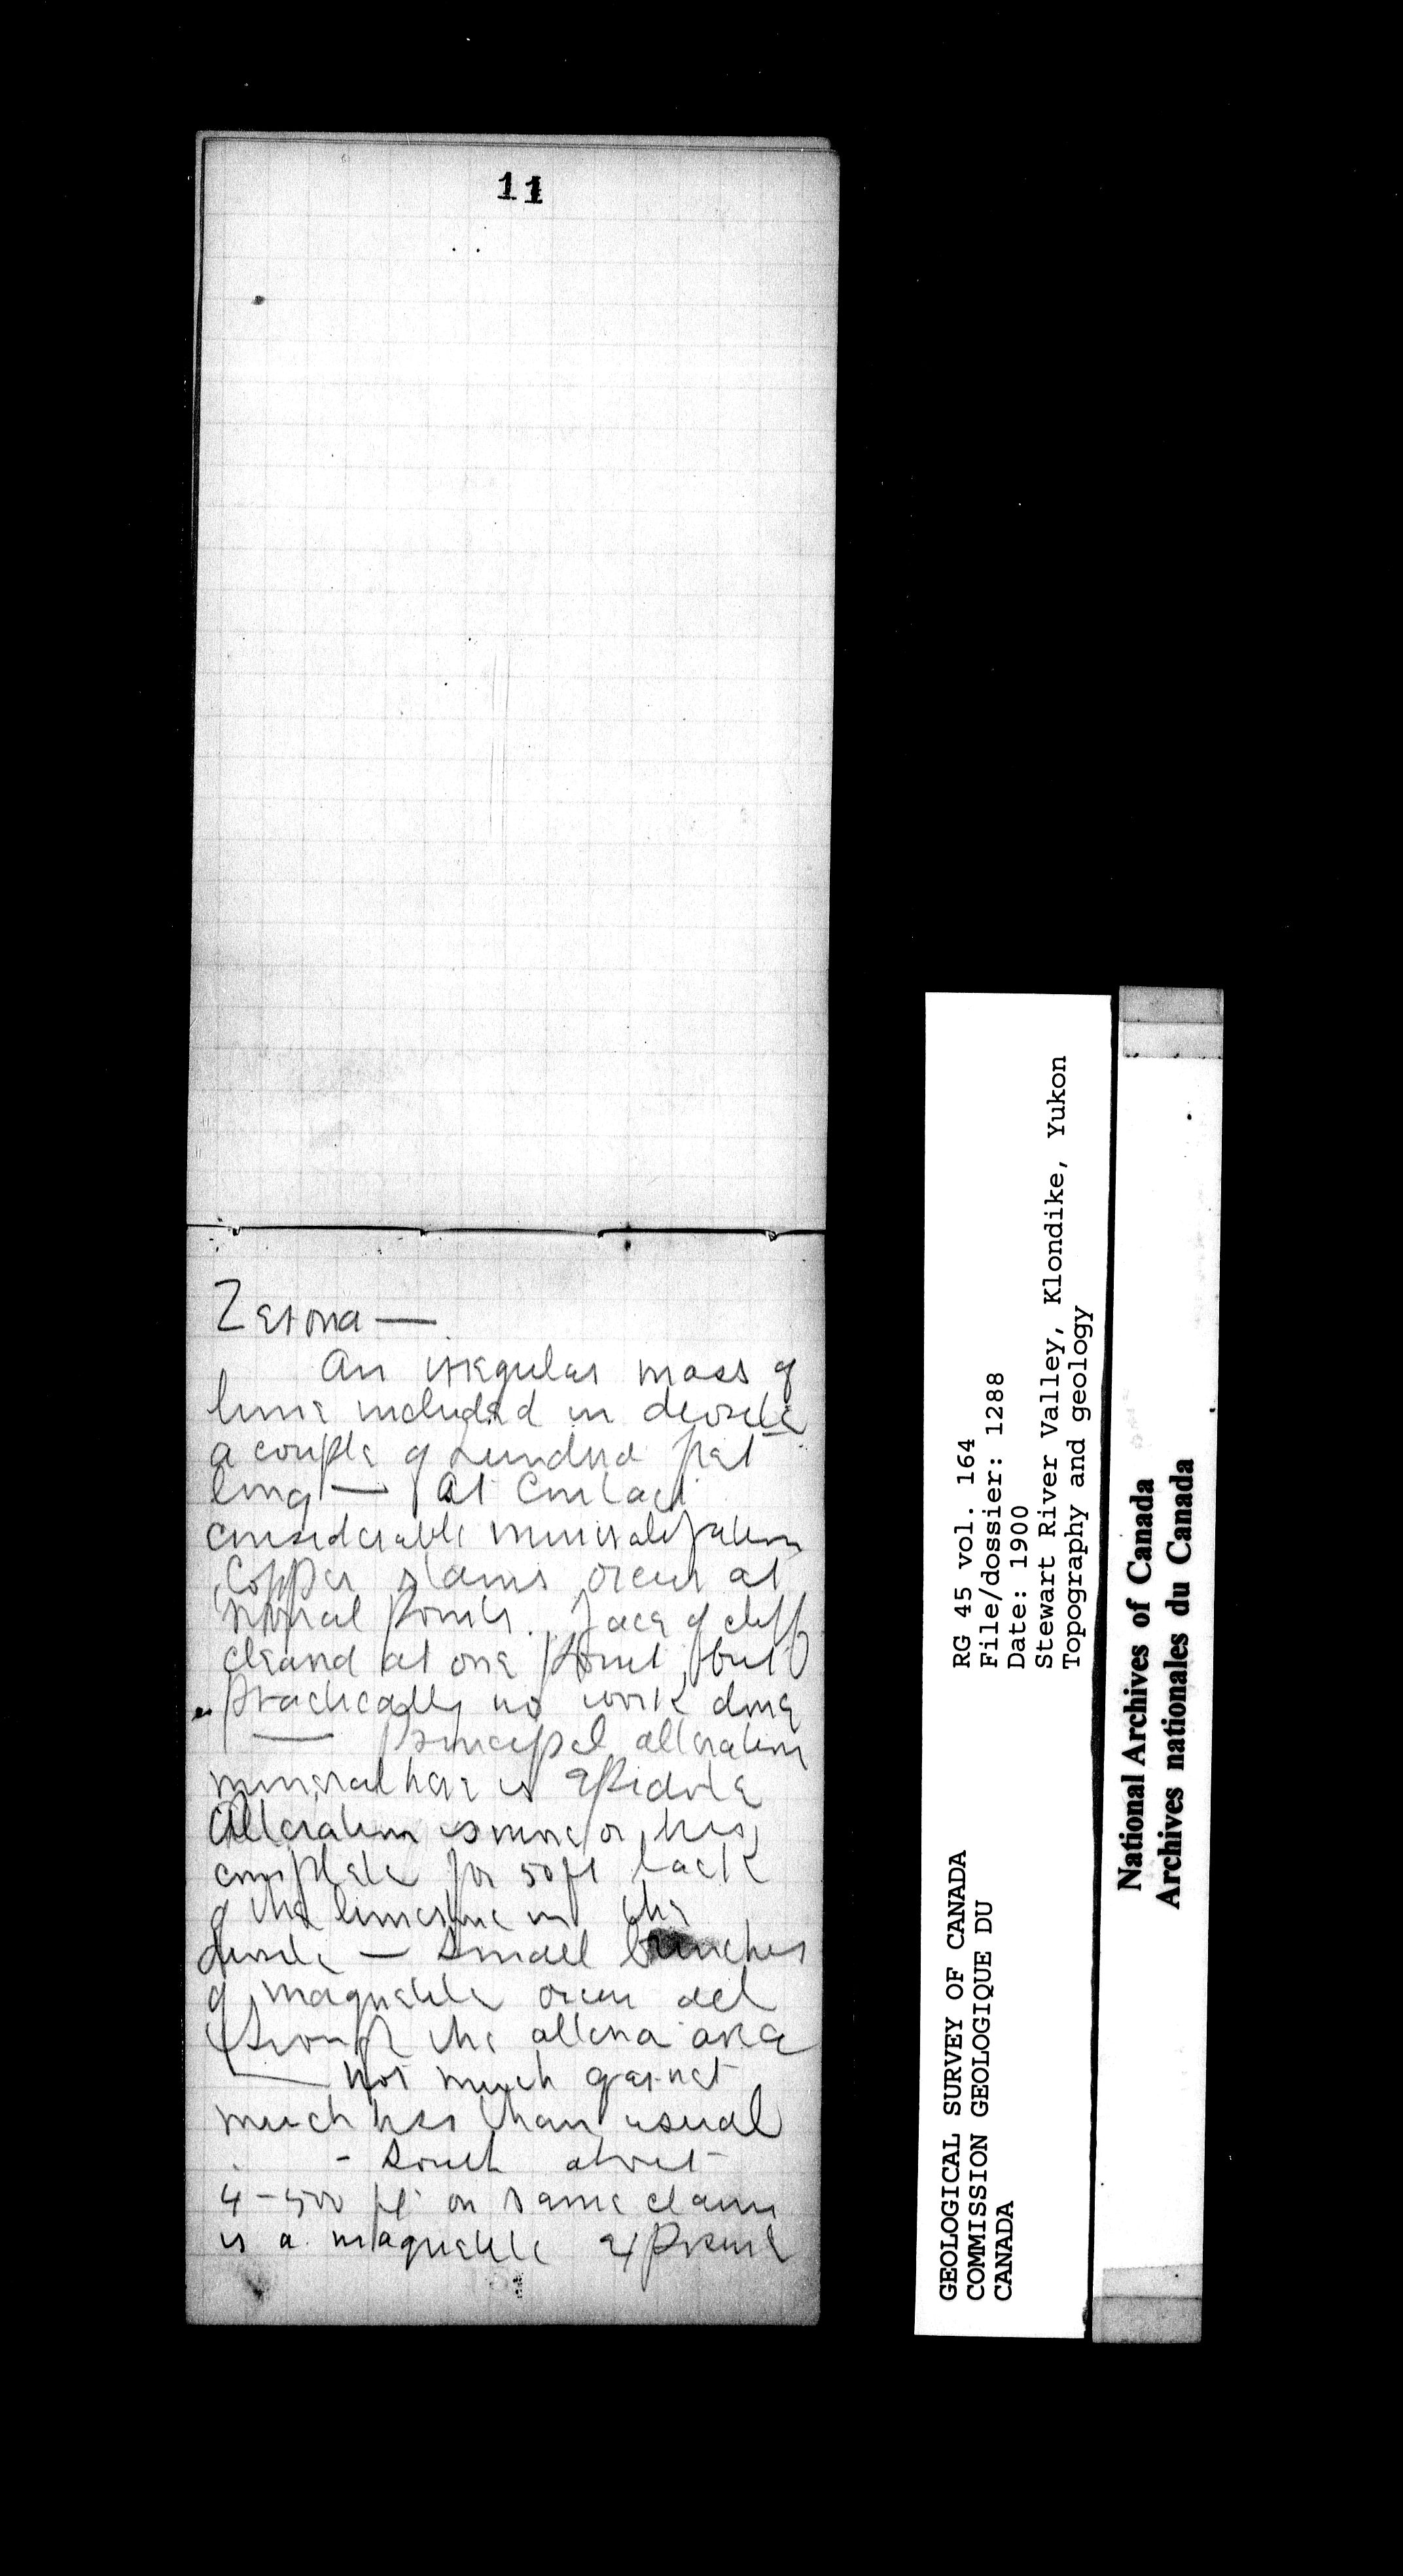 11
Zerona —
An irregular mass of
lime included in diorite
a couple of hundred feet
long — At Contact
considerable mineralization
Copper stains occur at
several points. Face of cliff
cleaned at one point but
practically no work done
— Principal alteration
mineral here is Epidote
Alteration is more or less
complete for 50 ft back
of the limestone in the
diorite — Small bunches
of magnetite occur all
through the altered area
— Not much garnet
much less than usual
- South about
4-500 ft on same claim
is a magnetite exposure
GEOLOGICAL SURVEY OF CANADA
COMMISSION GEOLOGIQUE DU
CANADA
RG 45 vol. 164
File/dossier: 1288
Date: 1900
Stewart River Valley, Klondike, Yukon
Topography and geology
National Archives of Canada
Archives nationales du Canada